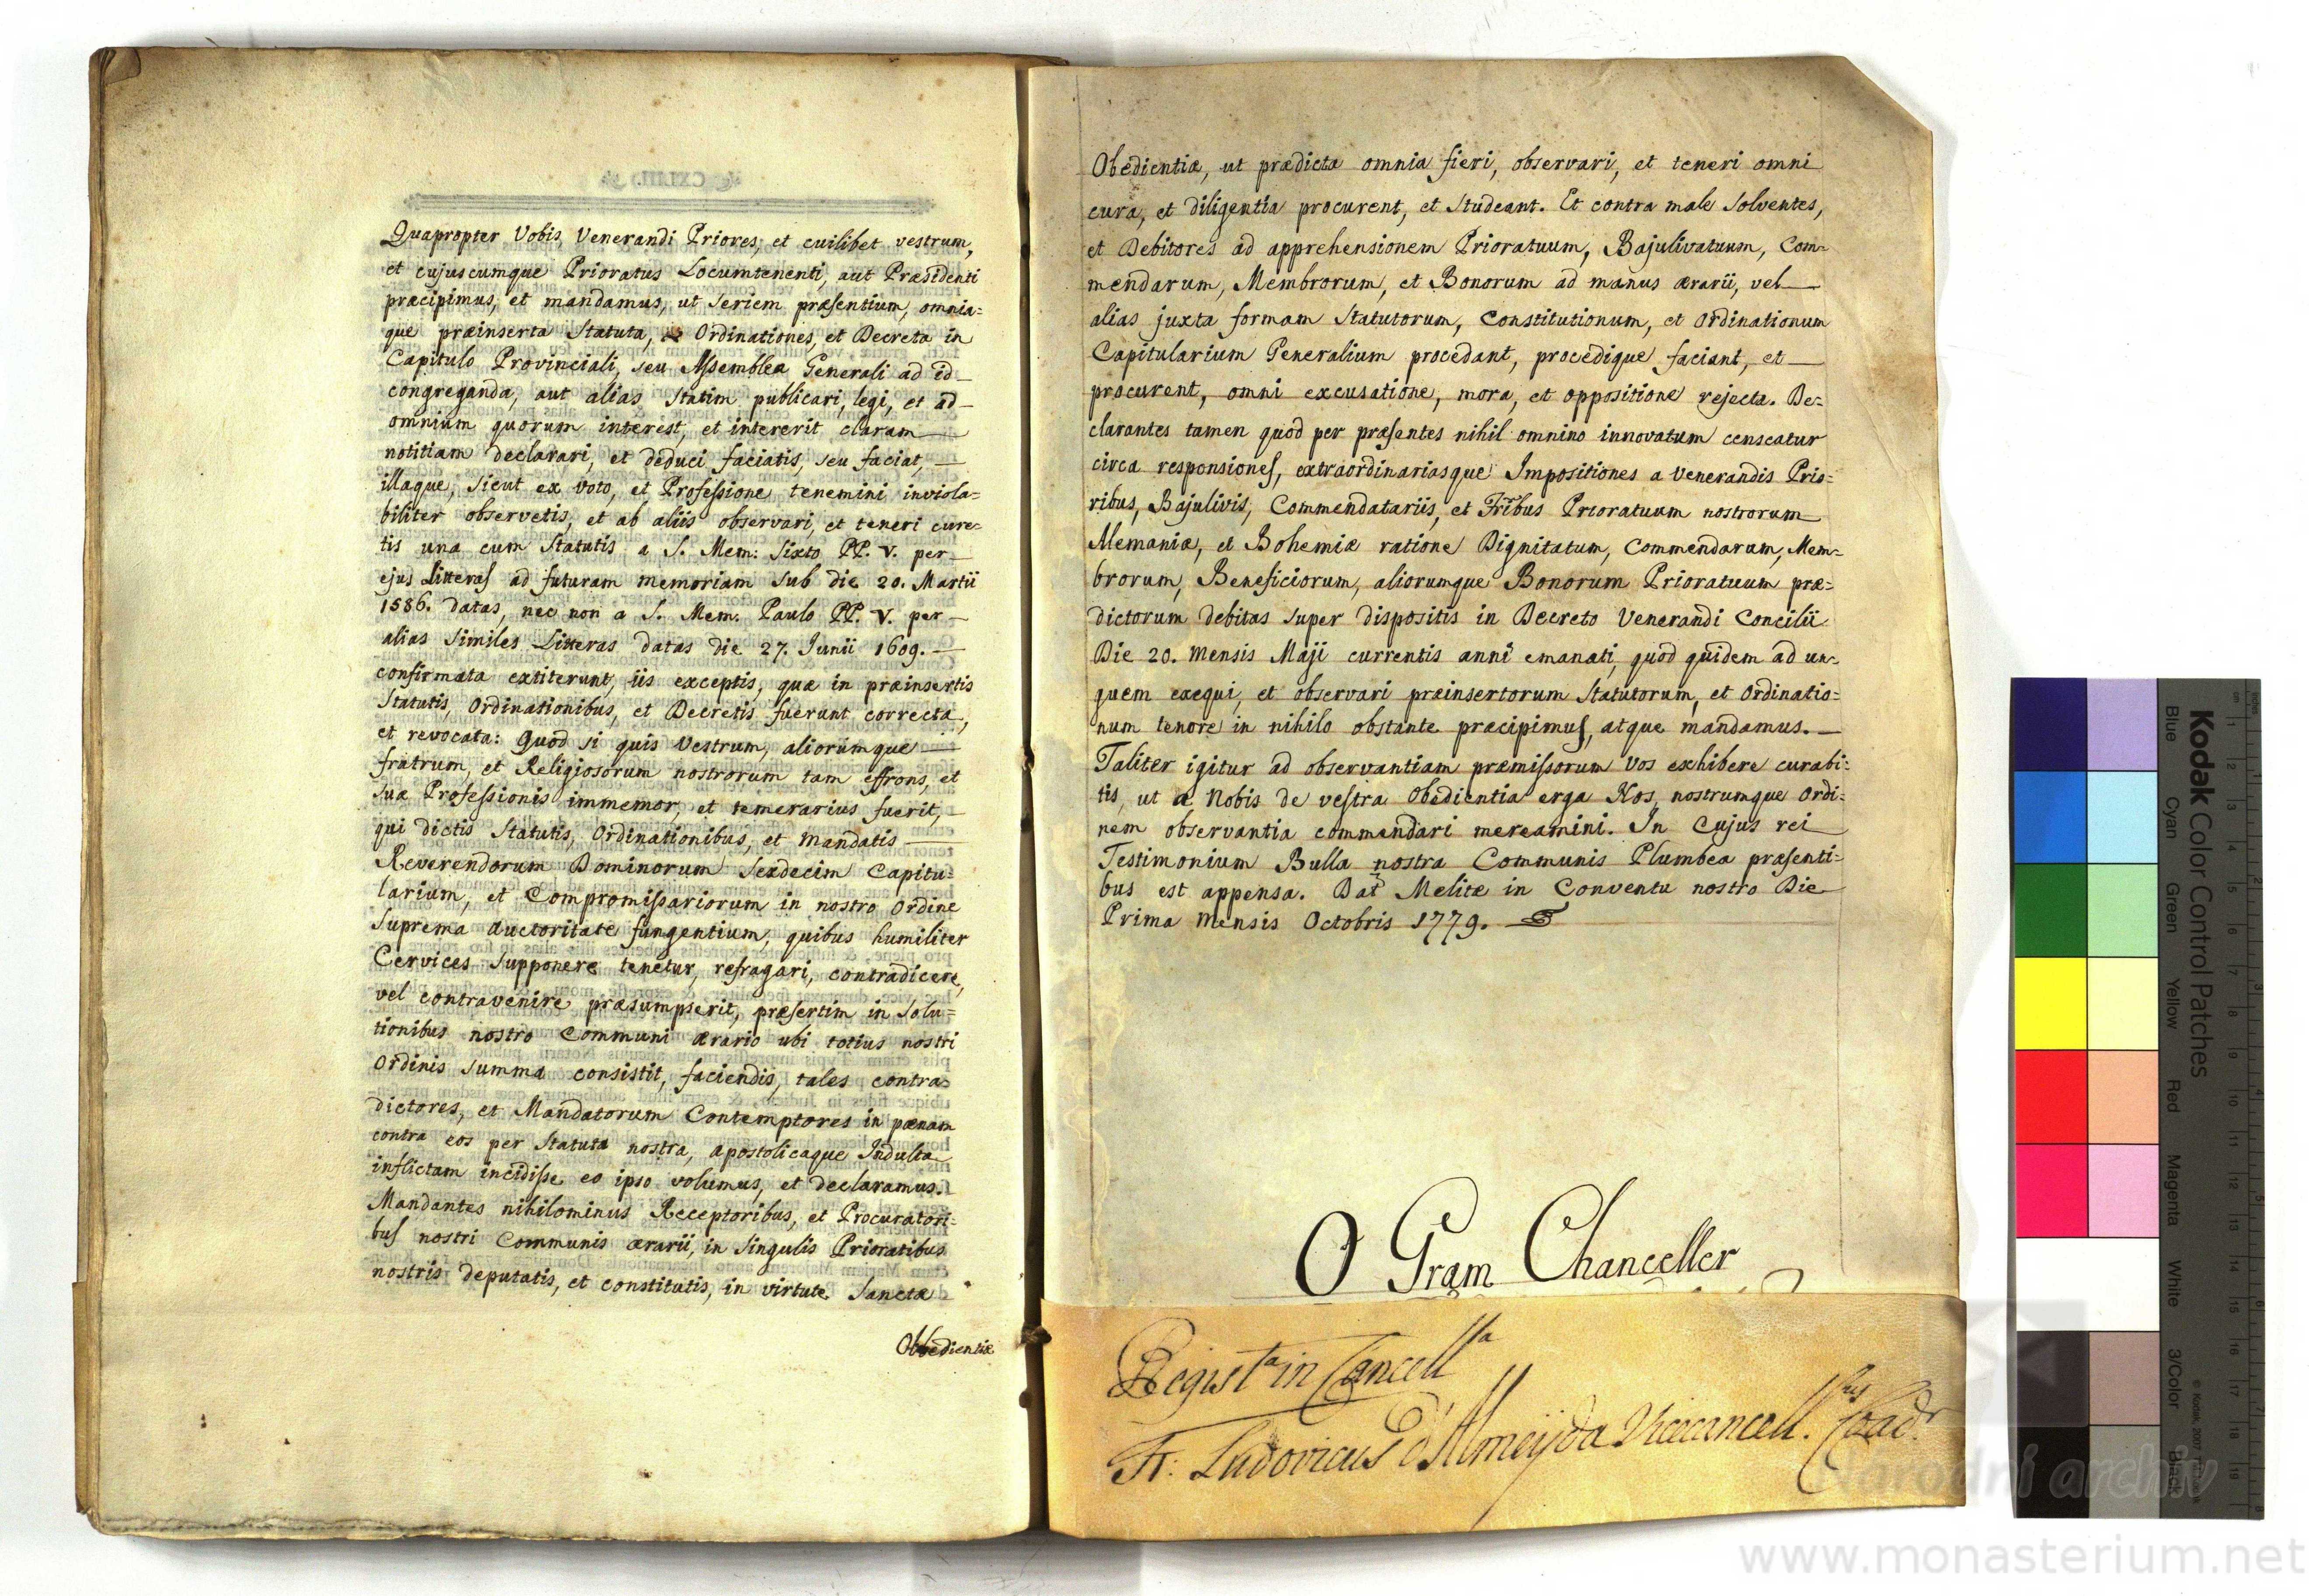 Quapropter Vobis, Venerandi Priores, et cuilibet vestrum,
et cujuscumque Prioratus Locumtenenti, aut Præsidenti
præcipimus, et mandamus, ut seriem præsentium, omnia=
que præinserta Statuta, Ordinationes, et Decreta in
Capitulo Provinciali, seu Assemblea Generali ad id
congreganda, aut alias statim publicari, legi, et ad
omnium quorum interest, et intererit claram
notitiam declarari, et deduci faciatis, seu faciat,
illaque, sicut ex voto, et Professione tenemini inviola=
biliter observetis, et ab aliis observari, et teneri cure=
tis una cum Statutis a S. Mem: Sixto PP. V. per
ejus Litteras ad futuram memoriam sub die 20. Martii
1586. datas, nec non a S. Mem. Paulo PP. V. per
alias similes Litteras datas die 27. Junii 1609.
confirmata extiterunt, iis exceptis, quæ in præinsertis
Statutis, Ordinationibus, et Decretis fuerunt correcta,
et revocata: Quod si quis Vestrum, aliorumque
fratrum, et Religiosorum nostrorum tam effrons, et
suæ Professionis immemor, et temerarius fuerit,
qui dictis Statutis, Ordinationibus, et Mandatis
Reverendorum Dominorum Sexdecim Capitu=
larium, et Compromissariorum in nostro Ordine
Suprema auctoritate fungentium, quibus humiliter
Cervices supponere tenetur, refragari, contradicere,
vel contravenire præsumpserit, præsertim in solu=
tionibus nostro Communi ærario ubi totius nostri
Ordinis summa consistit, faciendis, tales contra=
dictores, et Mandatorum Contemptores in pænam
contra eos per Statuta nostra, apostolicaque Indulta
inflictam incidisse eo ipso volumus, et declaramus.
Mandantes nihilominus Receptoribus, et Procuratori=
bus nostri Communis ærarii, in singulis Prioratibus
nostris deputatis, et constitutis, in virtute Sanctæ
Obedientiæ
Obedientiæ, ut prædicta omnia fieri, observari, et teneri omni
cura, et diligentia procurent, et studeant. Et contra male solventes,
et Debitores ad apprehensionem Prioratuum, Bajulivatuum, Com=
mendarum, Membrorum, et Bonorum ad manus ærarii, vel
alias juxta formam Statutorum, Constitutionum, et Ordinationum
Capitularium Generalium procedant, procedique faciant, et
procurent, omni excusatione, mora, et oppositione rejecta. De=
clarantes tamen quod per præsentes nihil omnino innovatum censeatur
circa responsiones, extraordinariasque Impositiones a Venerandis Prio=
ribus, Bajulivis, Commendatariis, et Fr̃ibus Prioratuum nostrorum
Alemaniæ, et Bohemiæ ratione Dignitatum, Commendarum, Mem=
brorum, Beneficiorum, aliorumque Bonorum Prioratuum præ=
dictorum debitas super dispositis in Decreto Venerandi Concilii
Die 20. mensis Maji currentis anni emanati, quod quidem ad un=
guem exequi, et observari præinsertorum Statutorum, et Ordinatio=
num tenore in nihilo obstante præcipimus, atque mandamus.
Taliter igitur ad observantiam præmissorum vos exhibere curabi=
tis, ut a Nobis de vestra Obedientia erga Nos, nostrumque Ordi=
nem observantia commendari mereamini. In Cujus rei
Testimonium Bulla nostra Communis Plumbea præsenti=
bus est appensa. Dat̃ Melitæ in Conventu nostro Die
Prima Mensis Octobris 1779.
O Gram Chanceller
Registᵃ in Cancellᵃ
Fr: Ludovicus d'Almeyda Vicecancell.
Národní archiv
www.monasterium.net
Kodak Color Control Patches
Blue Cyan Green Yellow Red Magenta White 3/Color Black
© Kodak, 2007